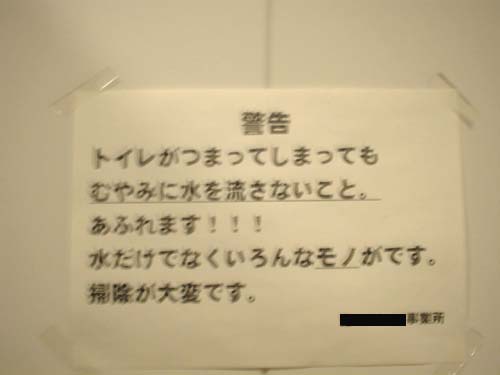 警告
トイレがつまってしまっても
むやみに水を流さないこと。
あふれます！！！
水だけでなくいろんなモノがです。
掃除が大変です。
事業所